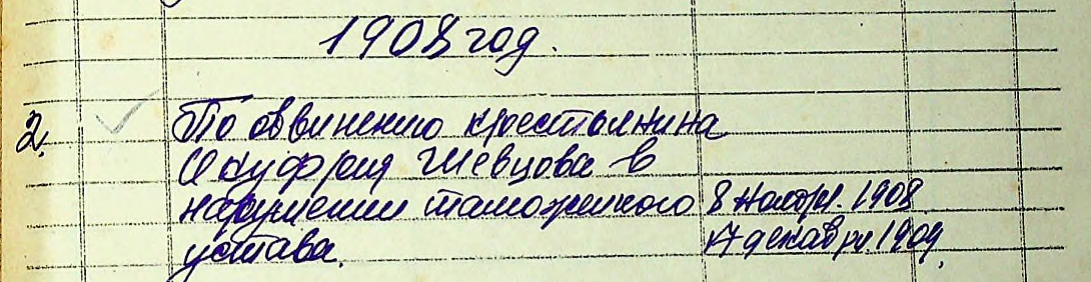 1908 год.
2. По обвинению крестьянина
Онуфрия Шевцова в
нарушении таможенного 8 ноябр. 1908
устава. 17 декабря 1909